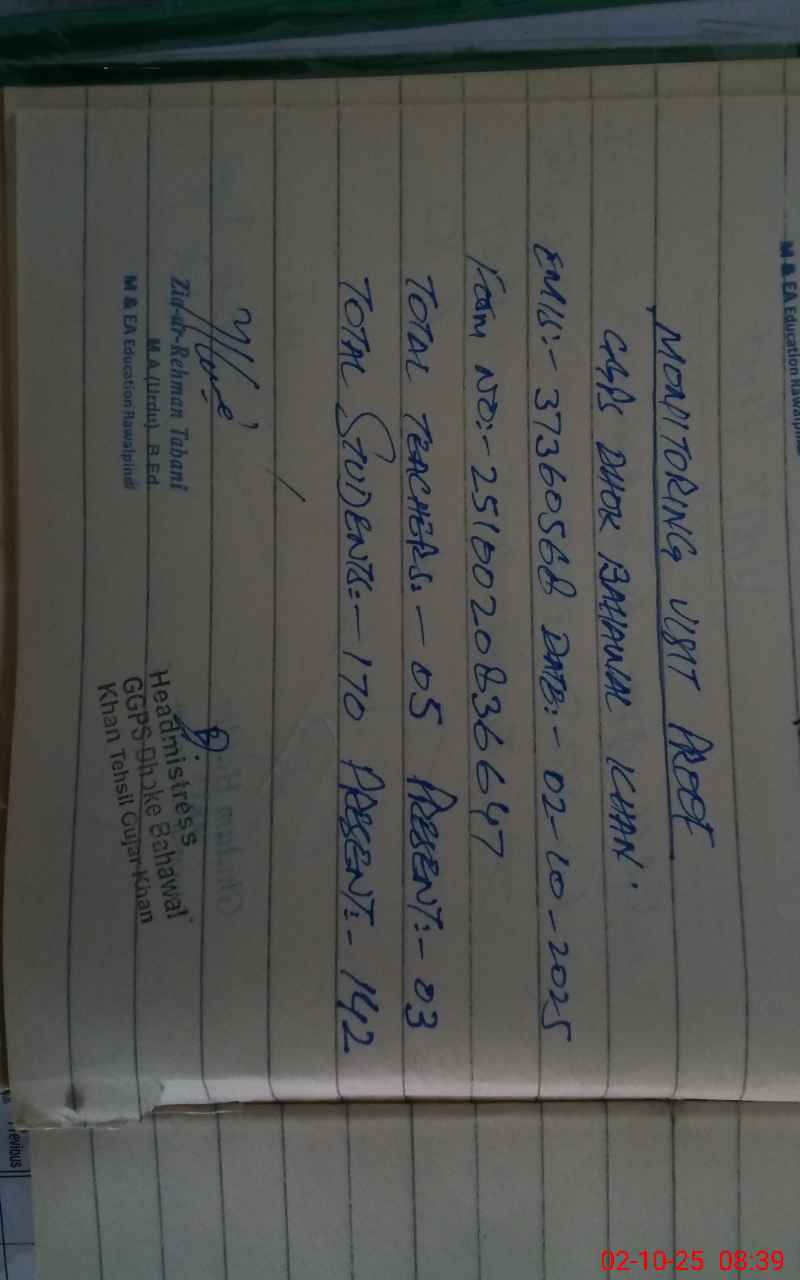 M & EA Education Rawalpindi
MONITORING VISIT PROOF
GGPS DHOK BAHAWAL KHAN.
EMIS:- 37360568 DATE:- 02-10-2025
FORM NO:- 2510020836647
TOTAL TEACHERS:- 05 PRESENT:- 03
TOTAL STUDENTS:- 170 PRESENT:- 142
Zia-ur-Rehman Tabani
M.A (Urdu) B.Ed
M & EA Education Rawalpindi
Headmistress
GGPS Dhoke Bahawal
Khan Tehsil Gujar Khan
Previous
02-10-25 08:39